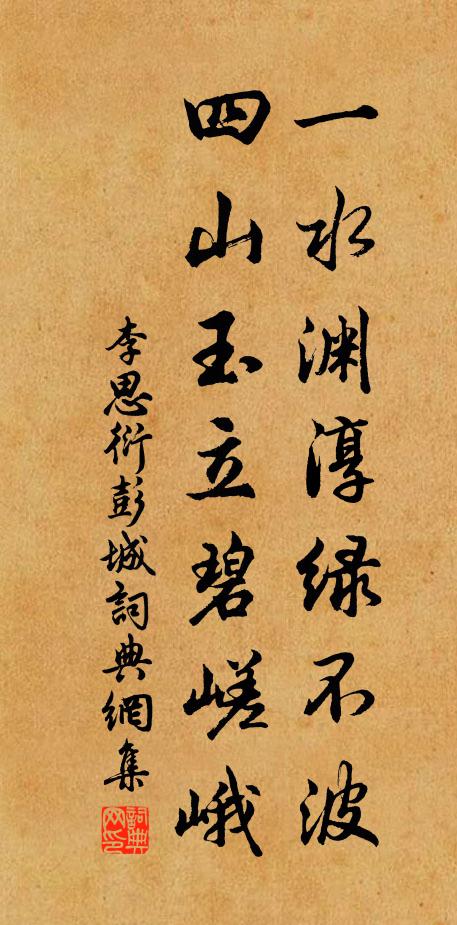 一水渊淳绿不波
四山玉立碧嵯峨
李思衍彭城詞典網集
詞典网印